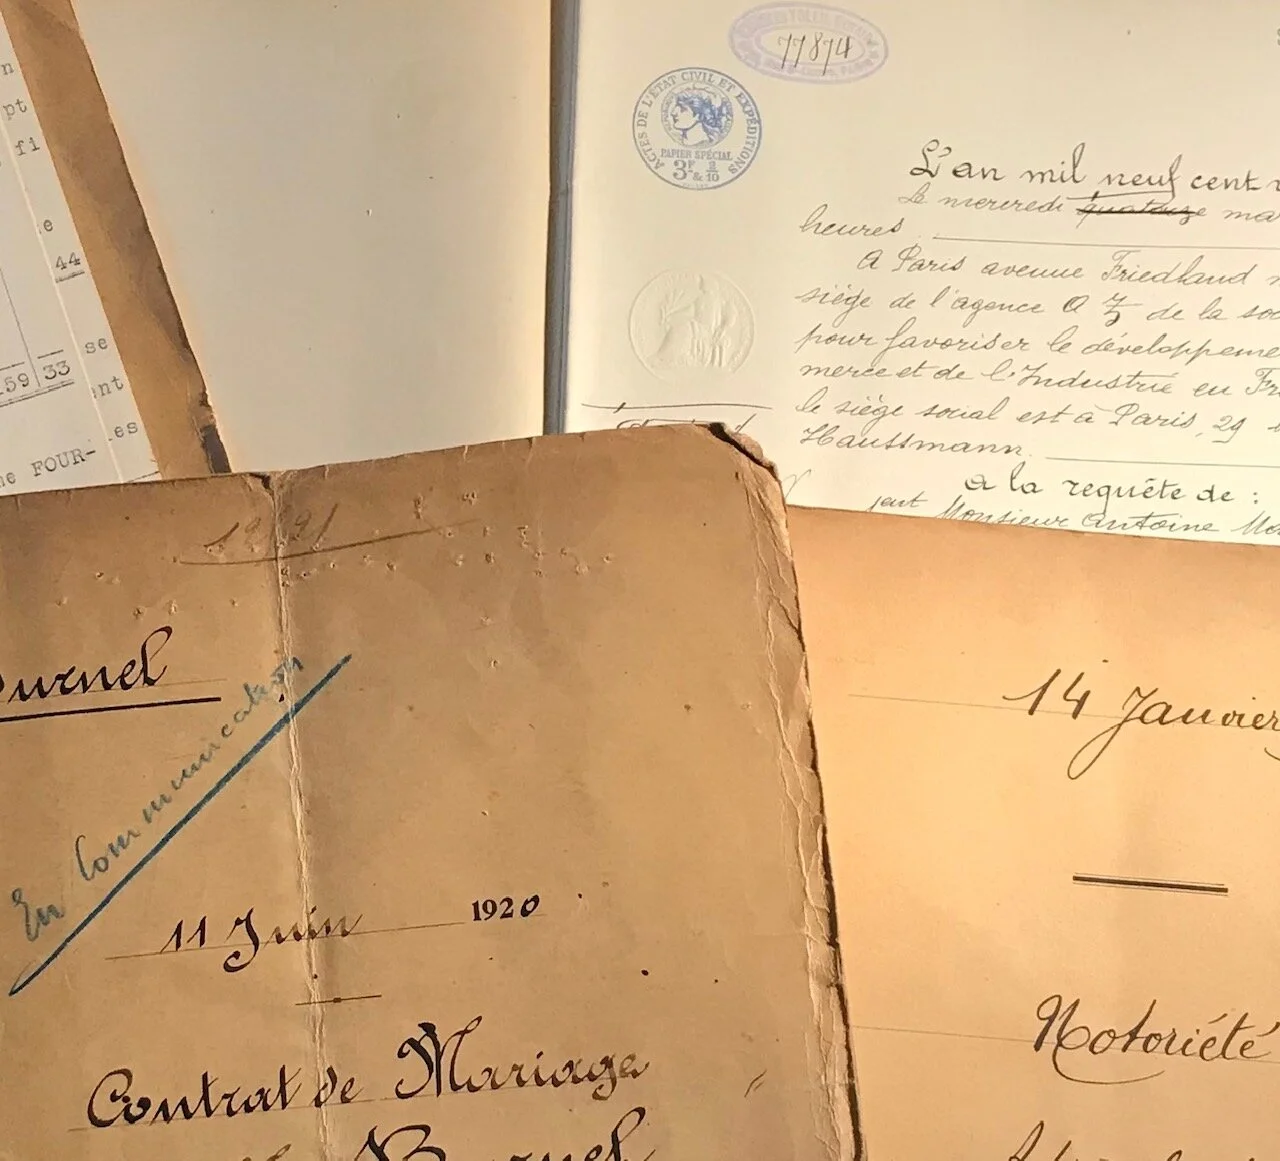 n
pt
fi
e
44
se
159 33
ent
es
ne FOUR-
77874
ACTES DE L'ÉTAT CIVIL ET EXPÉDITIONS
PAPIER SPÉCIAL
3F & 2/10
L'an mil neuf cent
Le mercredi quatorze mar
heures
A Paris avenue Friedland
siège de l'agence A Z de la soc
pour favoriser le développeme
merce et de l'Industrie en Fr
le siège social est à Paris, 29
Haussmann.
a la requête de :
Monsieur Antoine
urnel
En Communication
11 Juin 1920
Contrat de Mariage
Burnel
14 Janvier
Notoriété